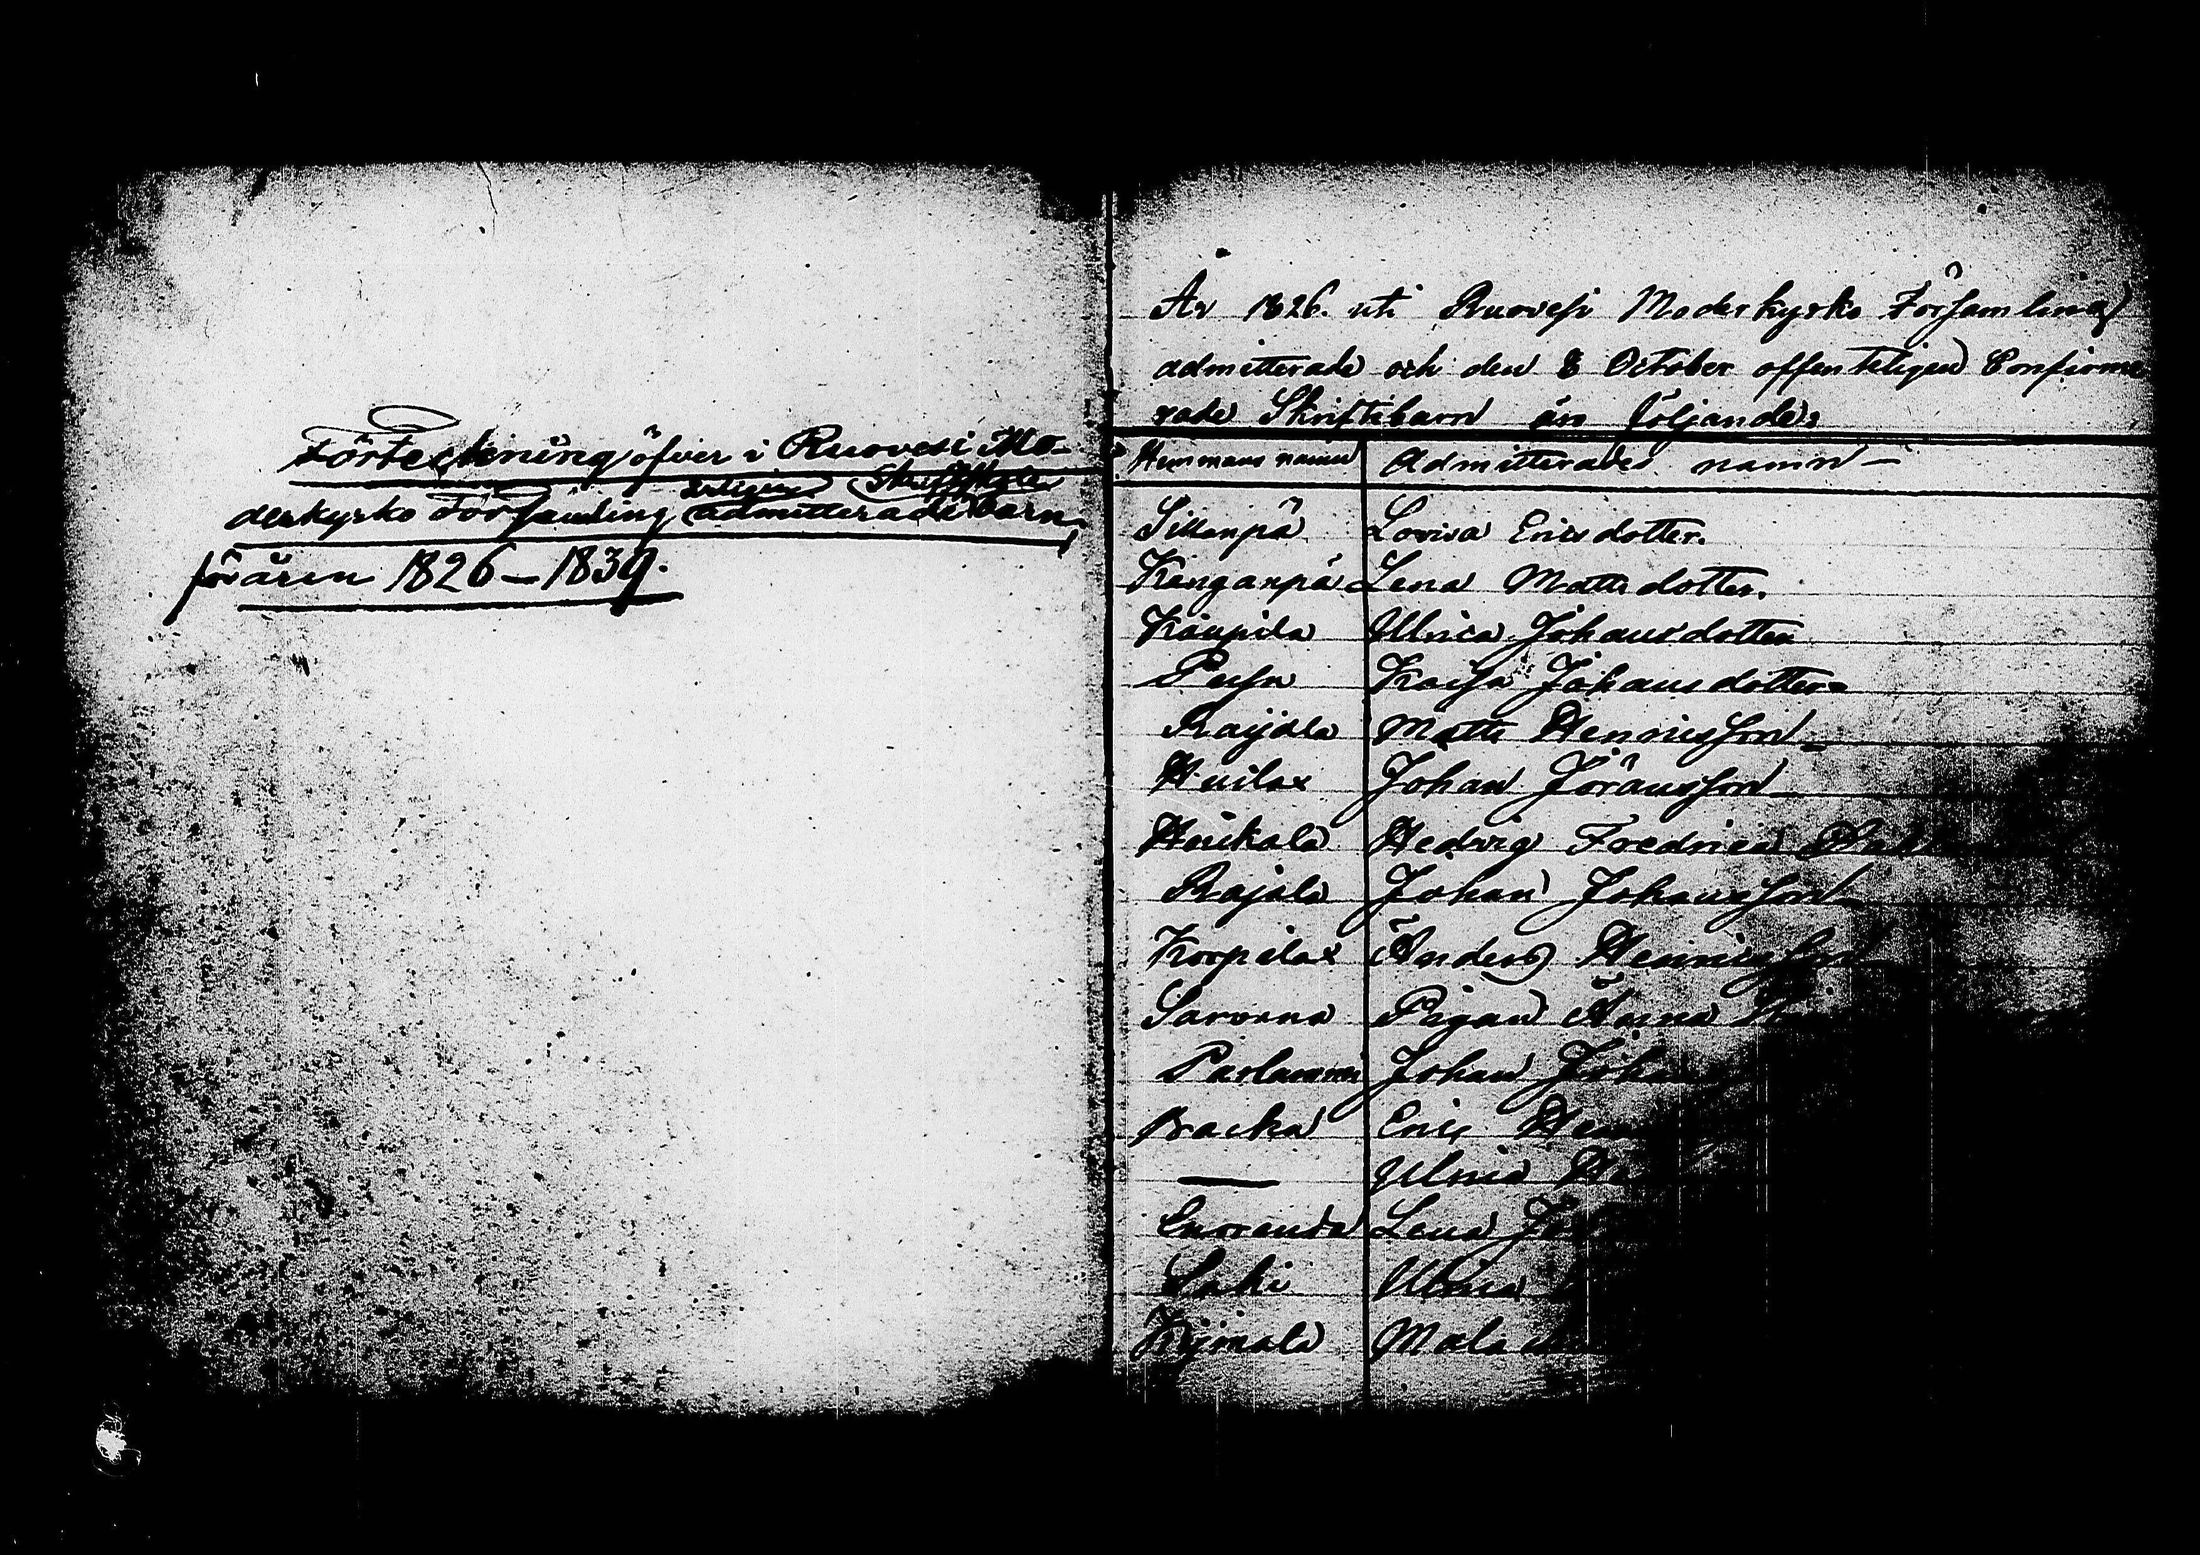 Förteckning öfver i Ruovesi Mo-
derkyrko Församling årligen admitterade Skriftskole barn,
för åren 1826–1839.
År 1826. uti Ruovesi Moderkyrko Församling
admitterade och den 8 October offenteligen Confirme
rade Skriftebarn än följande:
Hemmans namn Admitterades namn –
Sillenpä Lovisa Ericsdotter.
Kanganpä Lena Mattsdotter.
Kaupila Ulrica Johansdotter
Pusu Kaisa Johansdotter
Rajala Matts Henricsson
Huilax Johan Jöransson
Haukala Hedvig Fredrica
Rajala Johan Johansson
Korpilax Anders Henricsson
Savorna Pigan Anna
Parlammi Johan Joha
Bracka Eric Hen
— Ulrica He
Enoranda Lena Jo
Laki Ulrica
Kijmala